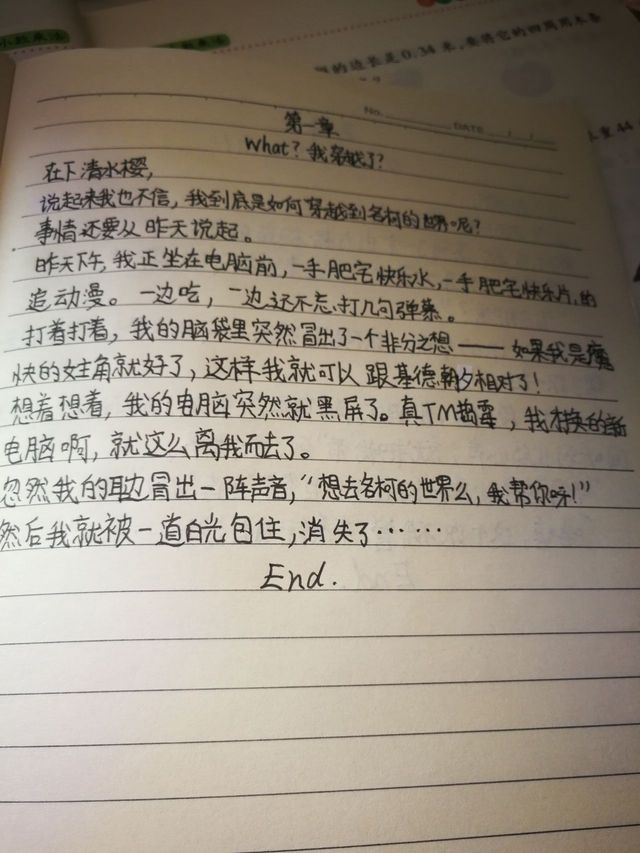 的边长是0.34米,要将它的四周用木条
重44
No.
DATE / /
第一章
What?我穿越了?
在下清水樱,
说起来我也不信,我到底是如何穿越到名柯的世界呢?
事情还要从昨天说起。
昨天下午,我正坐在电脑前,一手肥宅快乐水,一手肥宅快乐片,的
追动漫。一边吃,一边还不忘打几句弹幕。
打着打着,我的脑袋里突然冒出了一个非分之想——如果我是魔
快的女主角就好了,这样我就可以跟基德朝夕相对了!
想着想着,我的电脑突然就黑屏了。真TM倒霉,我才换的新
电脑啊,就这么离我而去了。
忽然我的耳边冒出一阵声音,“想去名柯的世界么,我帮你呀!”
然后我就被一道白光包住,消失了······
End.